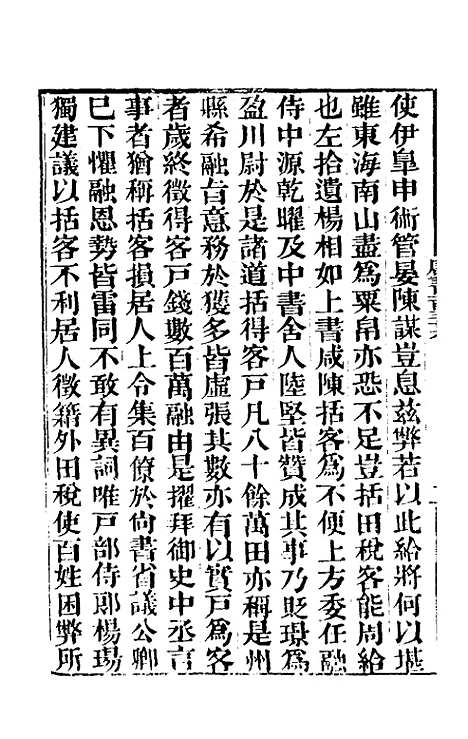 使伊臯申術管晏陳謀豈息茲弊若以此給將何以堪
雖東海南山盡爲粟帛亦恐不足豈括田稅客能周給
也左拾遺楊相如上書咸陳括客爲不便上方委任融
侍中源乾曜及中書舍人陸堅皆贊成其事乃貶璟爲
盈川尉於是諸道括得客戸凡八十餘萬田亦稱是州
縣希融旨意務於獲多皆虛張其數亦有以實戸爲客
者歲終徵得客戸錢數百萬融由是擢拜御史中丞言
事者猶稱括客損居人上令集百僚於尙書省議公卿
已下懼融恩勢皆雷同不敢有異詞唯戸部侍郎楊瑒
獨建議以括客不利居人徵籍外田稅使百姓困弊所